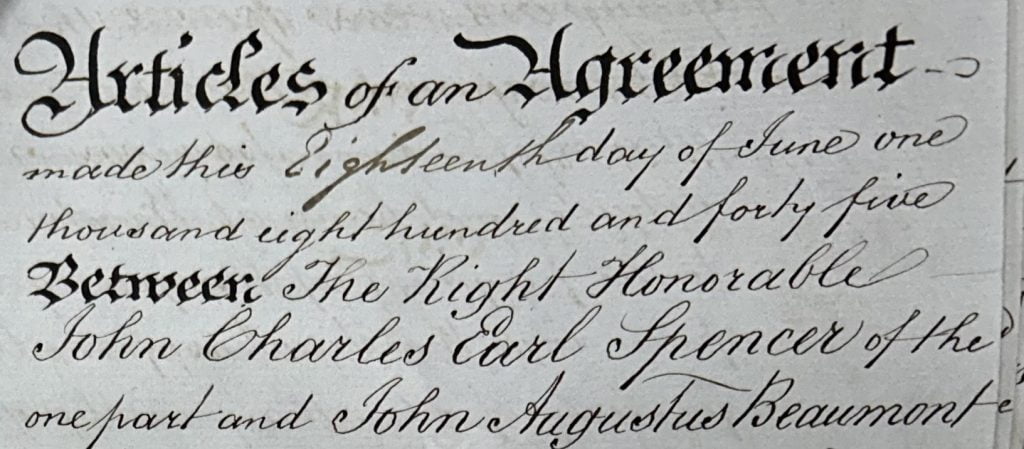 Articles of an Agreement
made this Eighteenth day of June one
thousand eight hundred and forty five
Between The Right Honorable
John Charles Earl Spencer of the
one part and John Augustus Beaumont